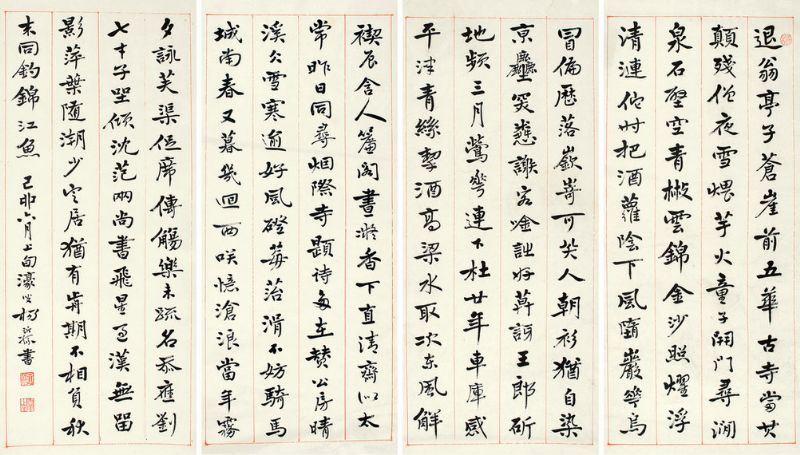 退翁亭子蒼崖前五華古寺當其
顛殘僧夜雪煨芋火童子開門尋澗
泉石壁空青楸雲錦金沙照耀浮
清漣他時把酒蘿陰下風墮巖花烏
冒偏歷落嶔崎可笑人朝衫猶自染
京塵笑謝客將莽訝王郎斫
地頻三月鶯花連下杜廿年車庫感
平津青絲挈酒高梁水取次東風解
禊辰舍人簾閣晝凝香下直清齋似太
常昨日同尋烟際寺題詩多在贊公房晴
溪雪寒逾好風磴莓苔滑不妨騎馬
城南春又暮幾迴西笑憶滄浪當年霧
夕詠芙渠伍席傳觴樂未疏名忝應劉
七才子望傾沈范兩尚書飛星過漢無留
影萍葉隨潮少定居猶有肯期不相負秋
末同釣錦江魚 己卯六月上旬濠叟楊沂孫書